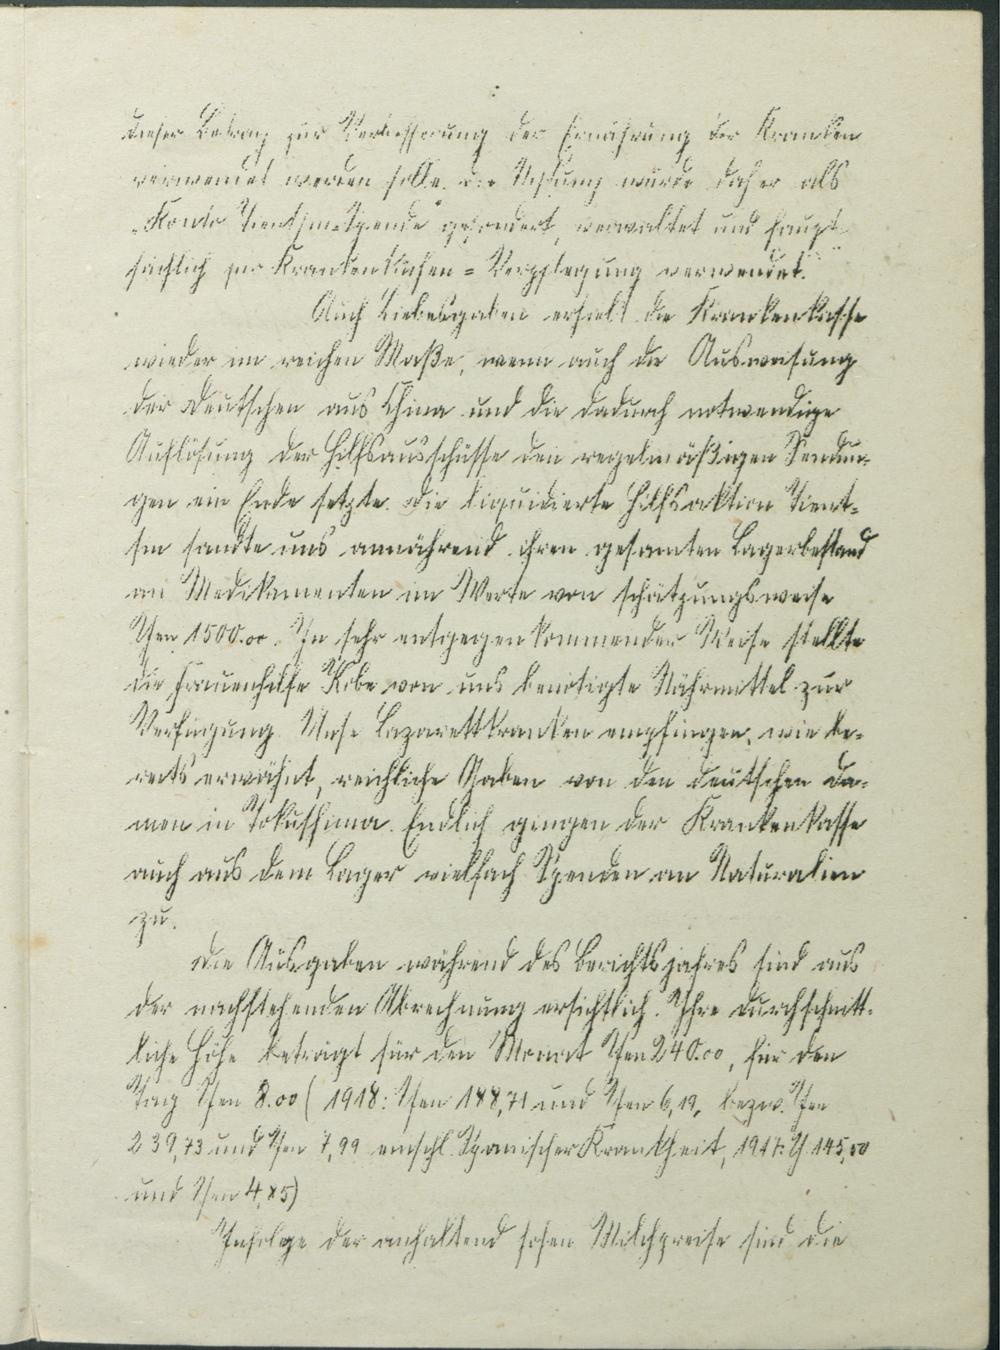 dieser Betrag zur Verbesserung der Ernährung der Kranken
verwendet werden solle. die Stiftung wurde daher als
„Konto Tientsin-Spende" gesondert verwaltet und haupt-
sächlich zur Krankenküchen=Verpflegung verwendet.
Auch Liebesgaben erhielt die Krankenkasse
wieder im reichen Maße, wenn auch die Ausweisung
der Deutschen aus China und die dadurch notwendige
Auflösung der Hilfsausschüsse den regelmäßigen Sendun-
gen ein Ende setzte. Die liquidierte Hilfsaktion Tient-
sin sandte uns annährend ihren gesamten Lagerbestand
an Medikamenten im Werte von schätzungsweise
Yen 1500.00. In sehr entgegenkommender Weise stellte
die Frauenhilfe Kobe von uns benötigte Nährmittel zur
Verfügung. Unse Lazarettkranken empfingen, wie be-
reits erwähnt, reichliche Gaben von den deutschen Da-
men in Tokushima. Endlich gingen der Krankenkasse
auch aus dem Lager vielfach Spenden an Naturalien
zu.
Die Ausgaben während des Berichtsjahres sind aus
der nachstehenden Abrechnung ersichtlich. Ihre durchschnitt-
liche Höhe beträgt für den Monat Yen 240.00, für den
Tag Yen 8.00 (1918: Yen 188,71 und Yen 6,19, bezw. Yen
239,73 und Yen 7,99 einschl. Spanischer Krankheit, 1917: Y 145,50
und Yen 4,85)
Infolge der anhaltend hohen Milchpreise sind die